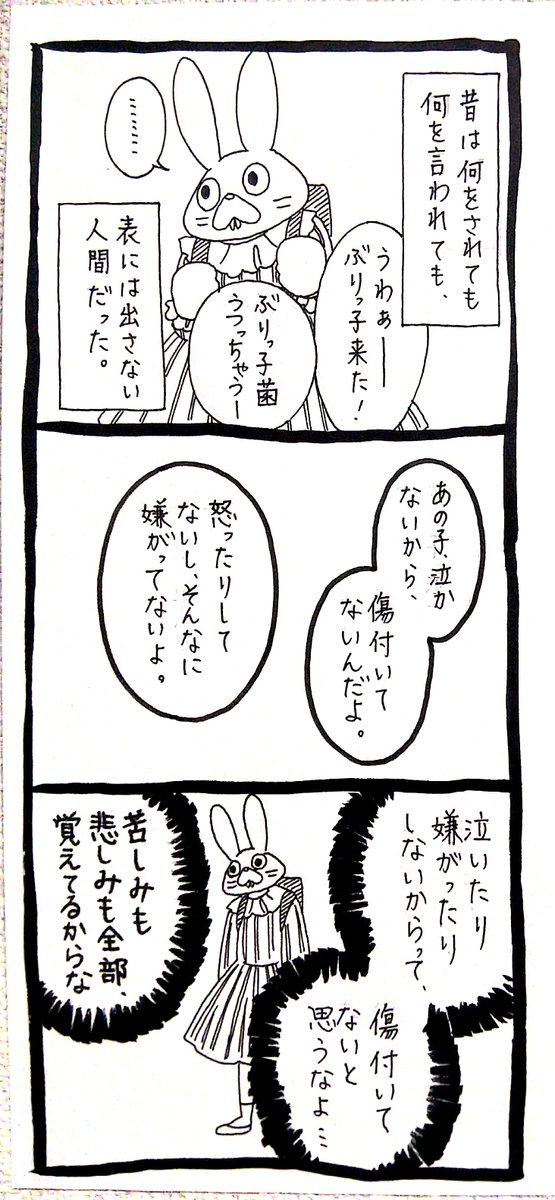 昔は何をされても
何を言われても、
うわぁー
ぶりっ子来た!
ぶりっ子菌
うつっちゃうー
………
表には出さない
人間だった。
あの子、泣か
ないから、
傷付いて
ないんだよ。
怒ったりして
ないし、そんなに
嫌がってないよ。
泣いたり
嫌がったり
しないからって、
傷付いて
ないと
思うなよ…
苦しみも
悲しみも全部、
覚えてるからな